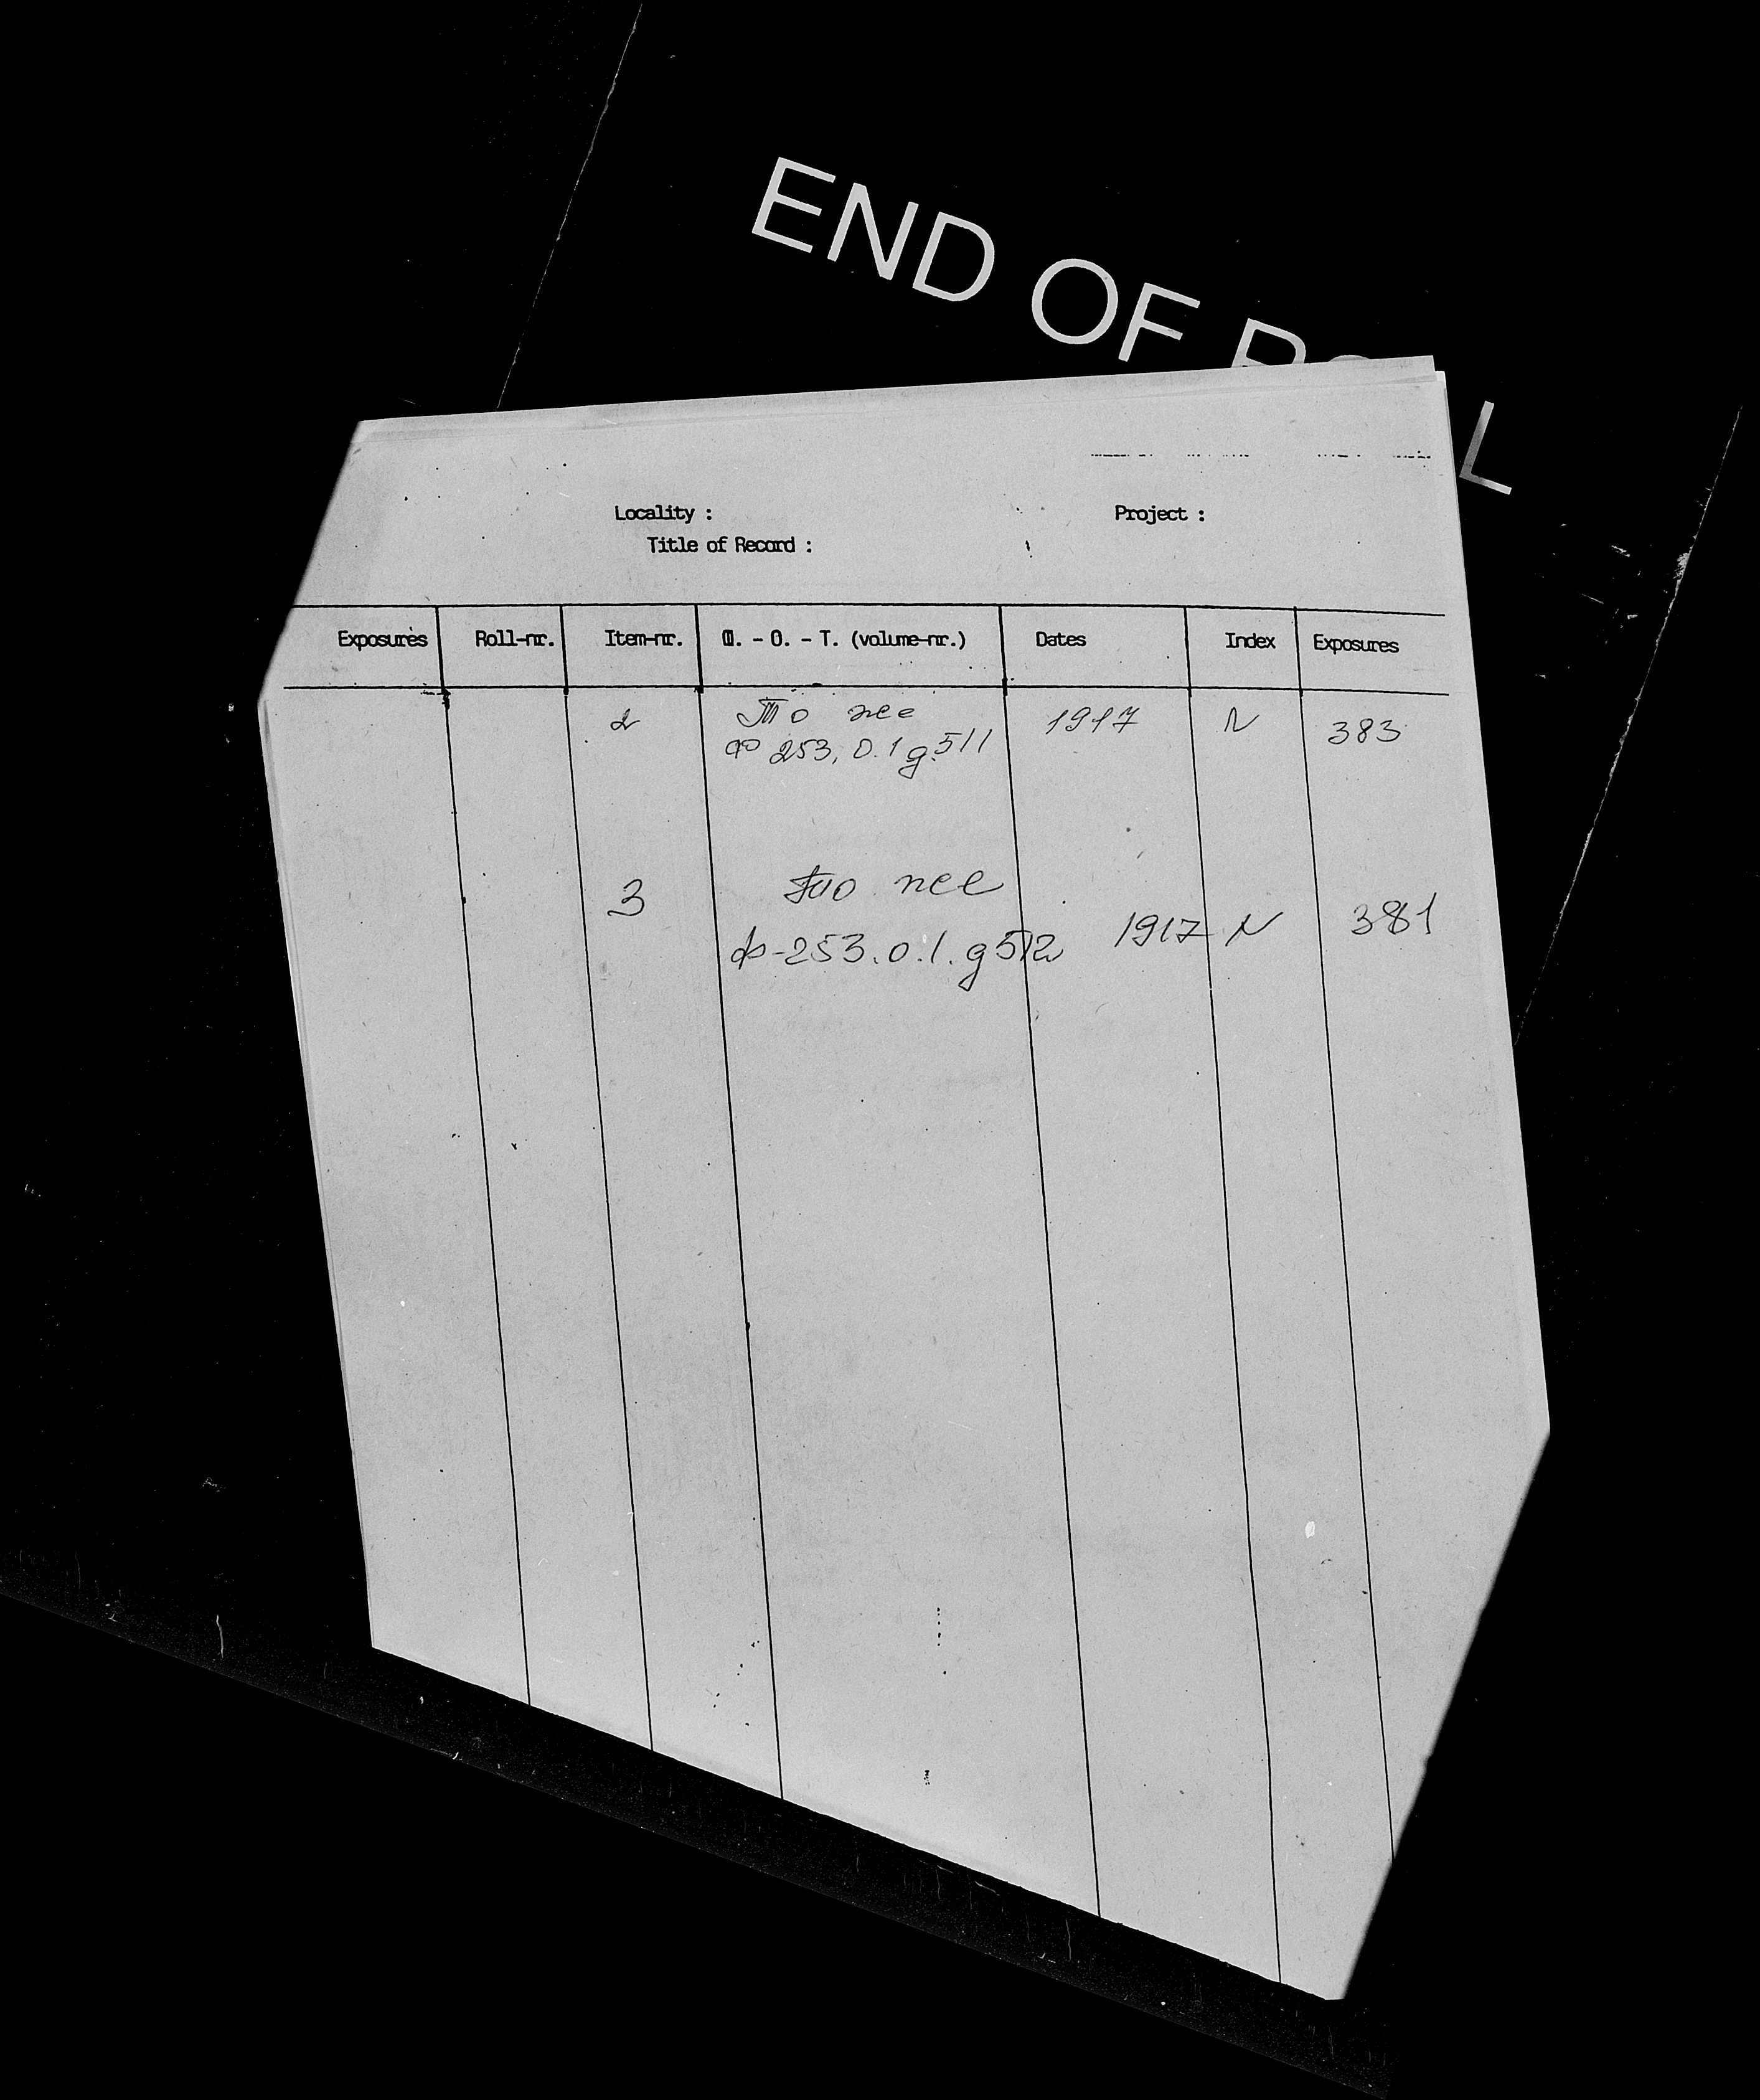 END OF
L
Locality :
Project :
Title of Record :
Exposures Roll-nr. Item-nr. Ф. - O. - T. (volume-nr.) Dates Index Exposures
2 То же 1917 N 383
Ф 253, О.1 д.511
3 То же
ф-253.о.1.д512 1917 N 381